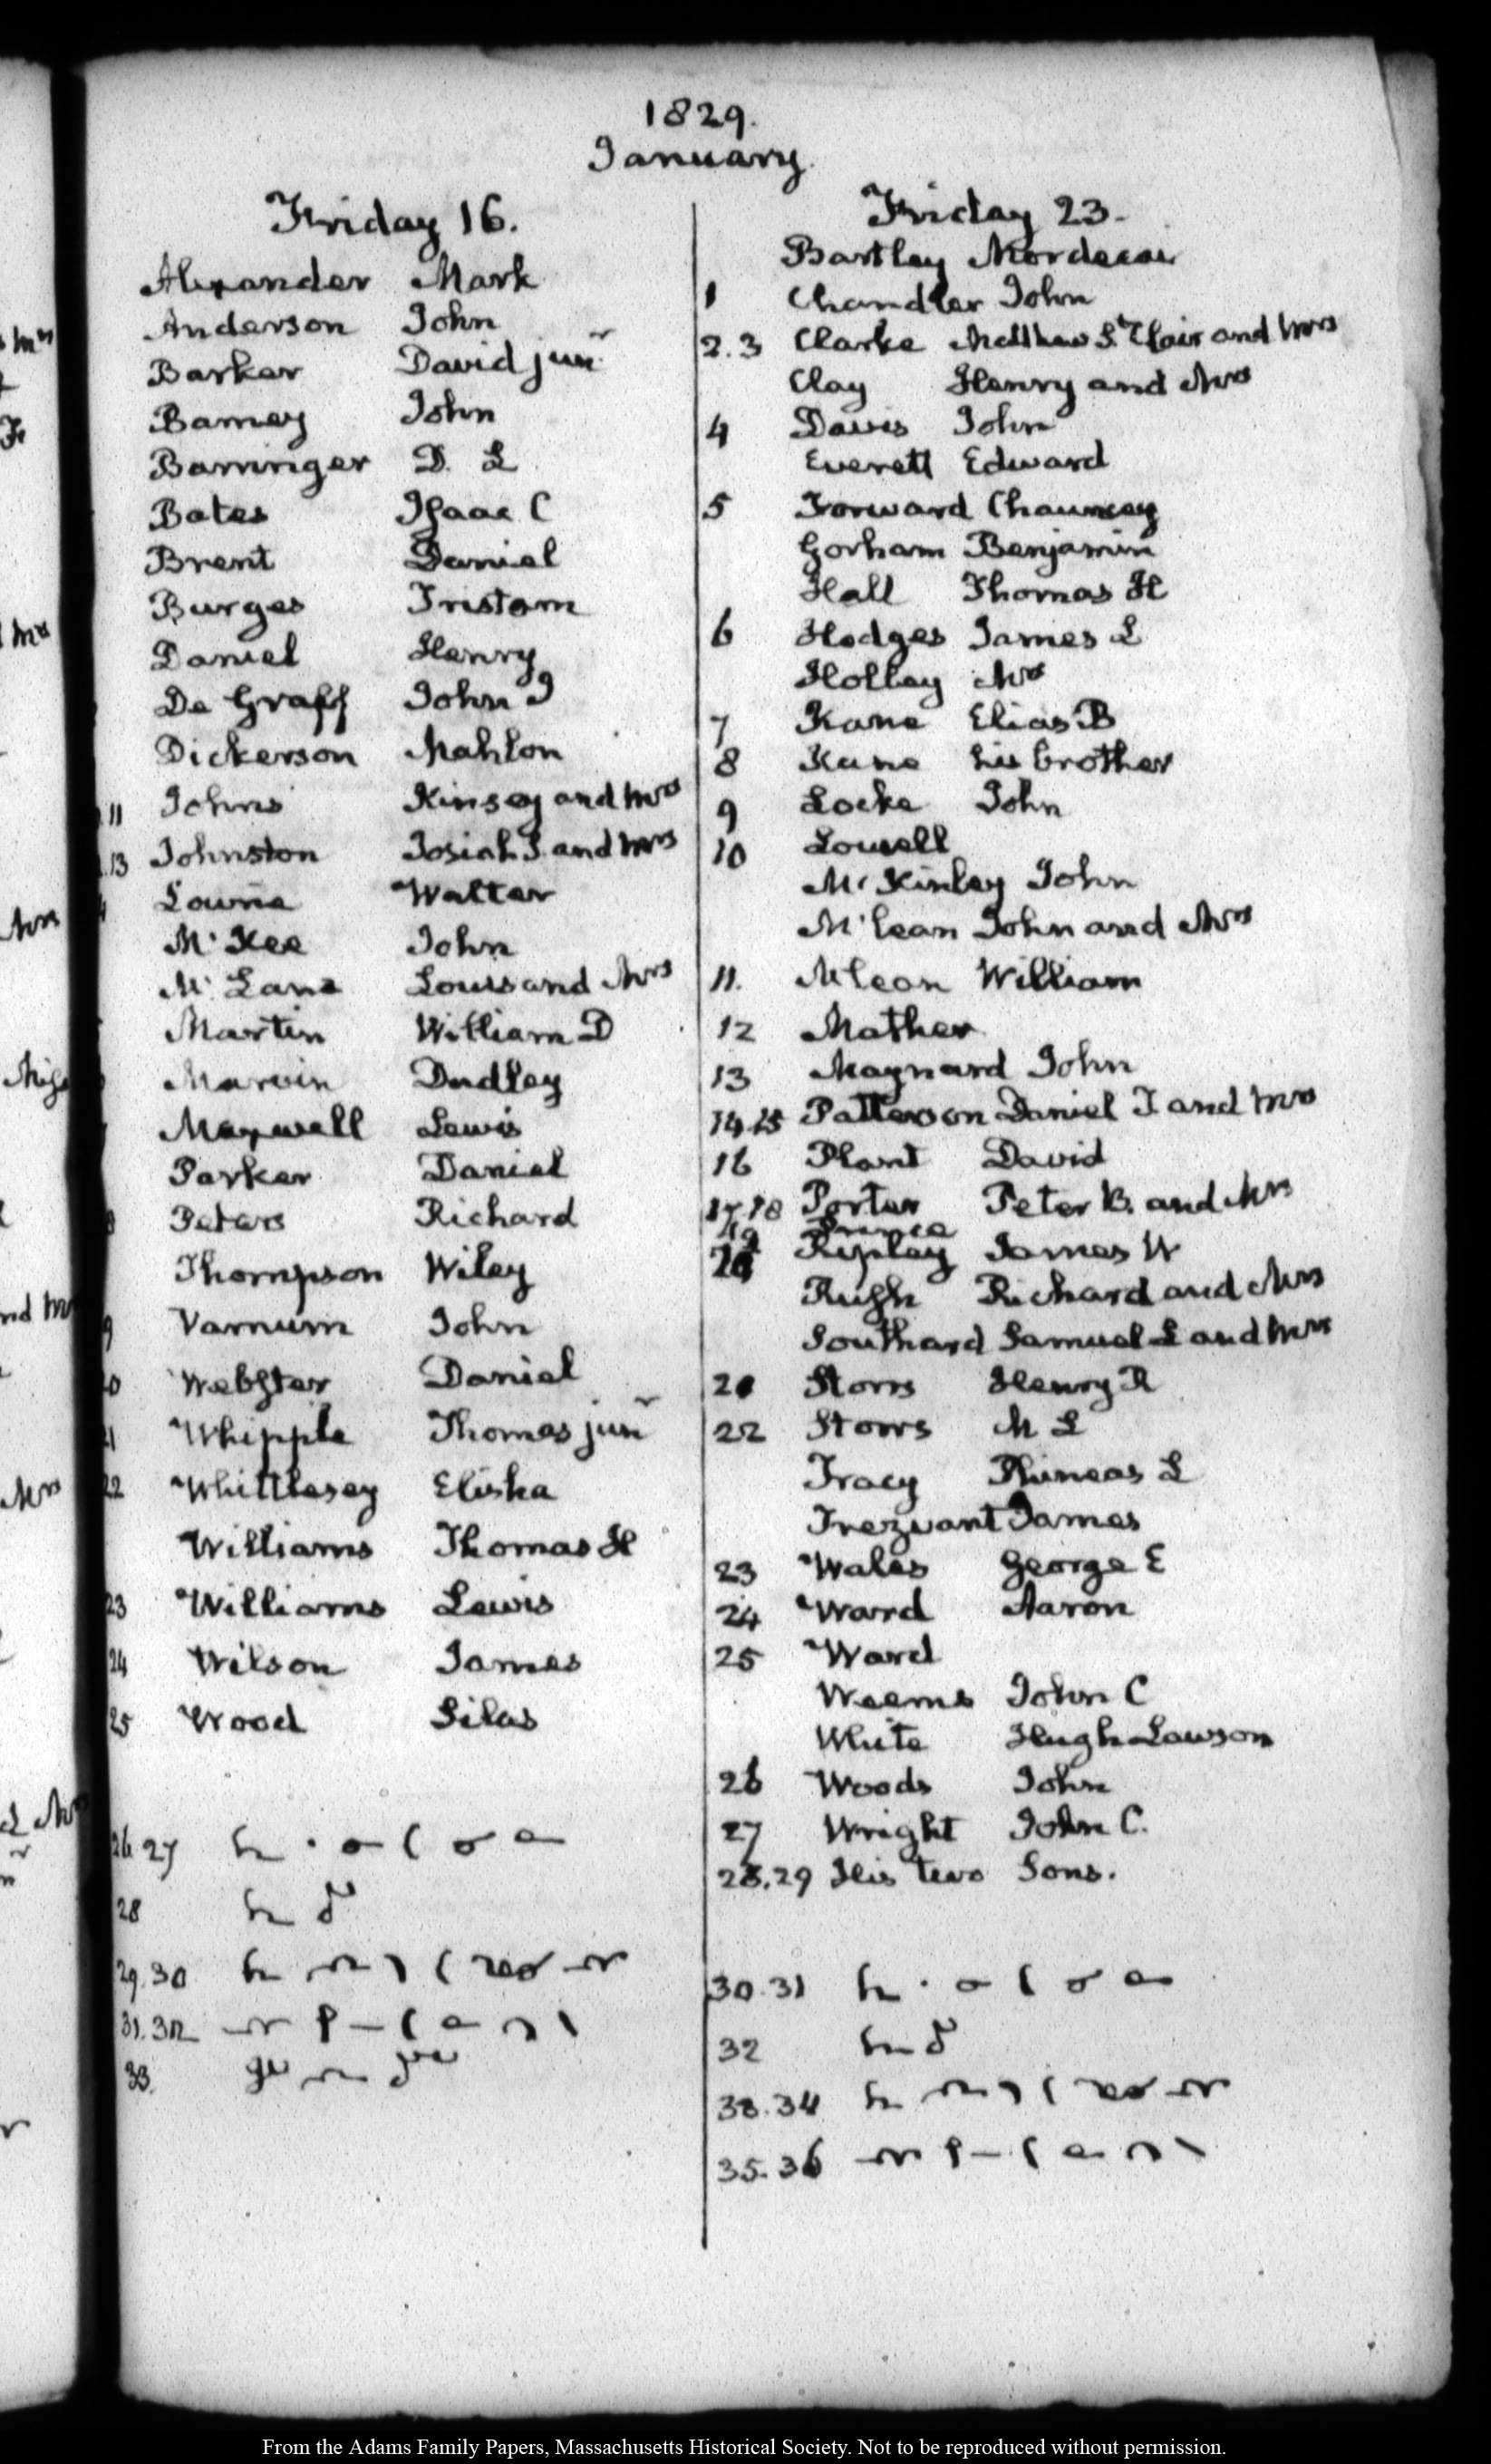 1829.
January.
Friday 16.
Alexander Mark
Anderson John
Barker David junr
Barney John
Barringer D. L
Bates Isaac C
Brent Daniel
Burges Tristam
Daniel Henry
De Graff John I
Dickerson Mahlon
11 Johns Kinsey and Mrs
13 Johnston Josiah S. and Mrs
Lowrie Walter
Mc Kee John
Mc Lane Louis and Mrs
Martin William D
Marvin Dudley
Maxwell Lewis
Parker Daniel
Peters Richard
Thompson Wiley
Varnum John
Webster Daniel
Whipple Thomas junr
22 Whittlesey Elisha
Williams Thomas H
23 Williams Lewis
24 Wilson James
25 Wood Silas
26.27
28
29.30
31.32
33.
Friday 23.
Bartley Mordecai
1 Chandler John
2.3 Clarke Matthew St. Clair and Mrs
Clay Henry and Mrs
4 Davis John
Everett Edward
5 Forward Chauncey
Gorham Benjamin
Hall Thomas H
6 Hodges James L
Holley Mrs
7 Kane Elias B
8 Kane his brother
9 Locke John
10 Lowell
Mc Kinley John
McLean John and Mrs
11. McLean William
12 Mather
13 Maynard John
14.15 Patterson Daniel T and Mrs
16 Plant David
17.18 Porter Peter B. and Mrs
19 Prince
20 Ripley James W
Rush Richard and Mrs
Southard Samuel L and Mrs
21 Storrs Henry R
22 Storrs M L
Tracy Phineas L
Trezvant James
23 Wales George E
24 Ward Aaron
25 Ward
Weems John C
White Hugh Lawson
26 Woods John
27 Wright John C.
28.29 His two Sons.
30.31
32
33.34
35.36
From the Adams Family Papers, Massachusetts Historical Society. Not to be reproduced without permission.